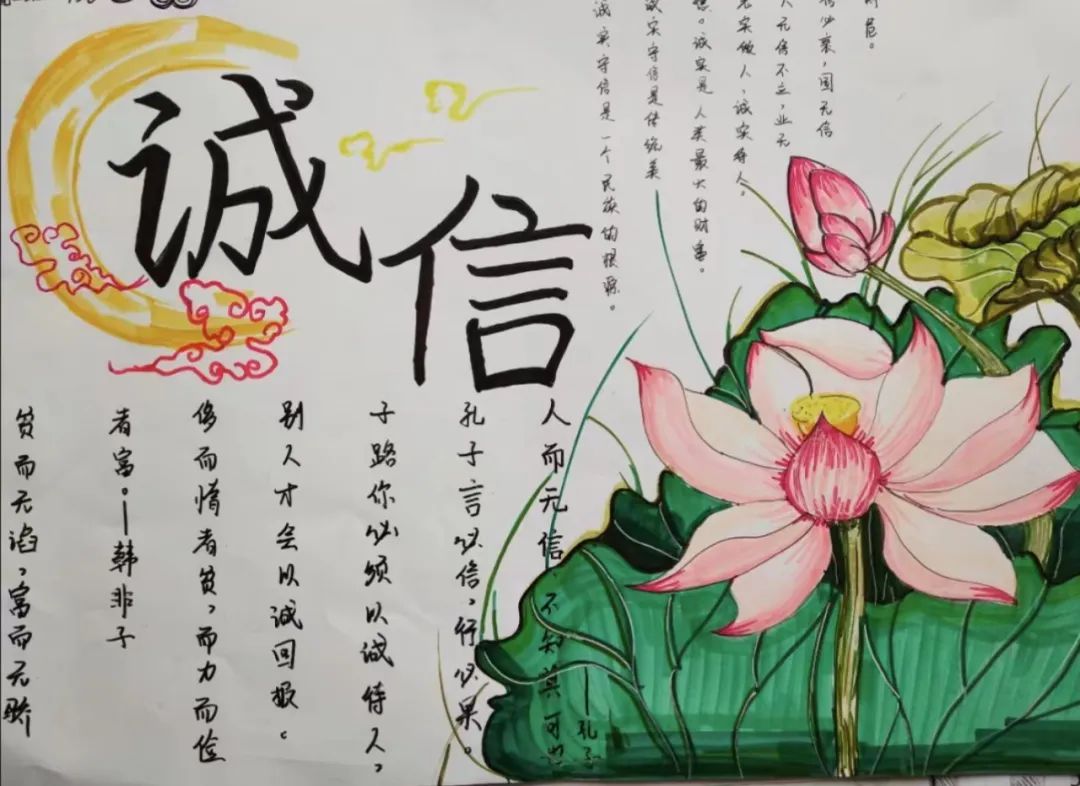 诚信
诚实守信是一个民族的根源。
诚实守信是传统美
德。诚实是人类最大的财富。
老实做人,诚实待人。
人无信不立,业无
信必衰,国无信
人而无信,不知其可也
——孔子
孔子言必信,行必果。
子路你必须以诚待人,
别人才会以诚回报。
侈而惰者贫,而力而俭
者富。——韩非子
贫而无谄,富而无骄